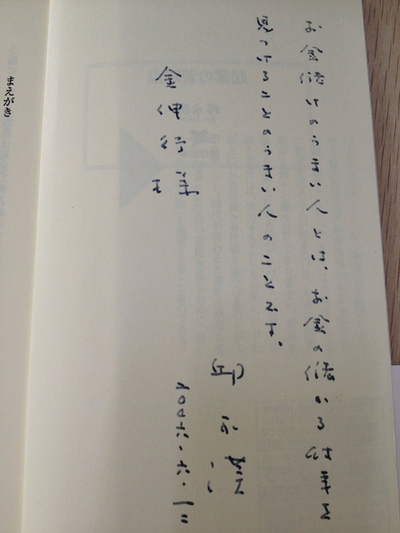 お金儲けのうまい人とは、お金の儲かる仕事を
見つけることのうまい人のことです。
邱永漢
二〇〇六・六・一二
金伸行様
まえがき